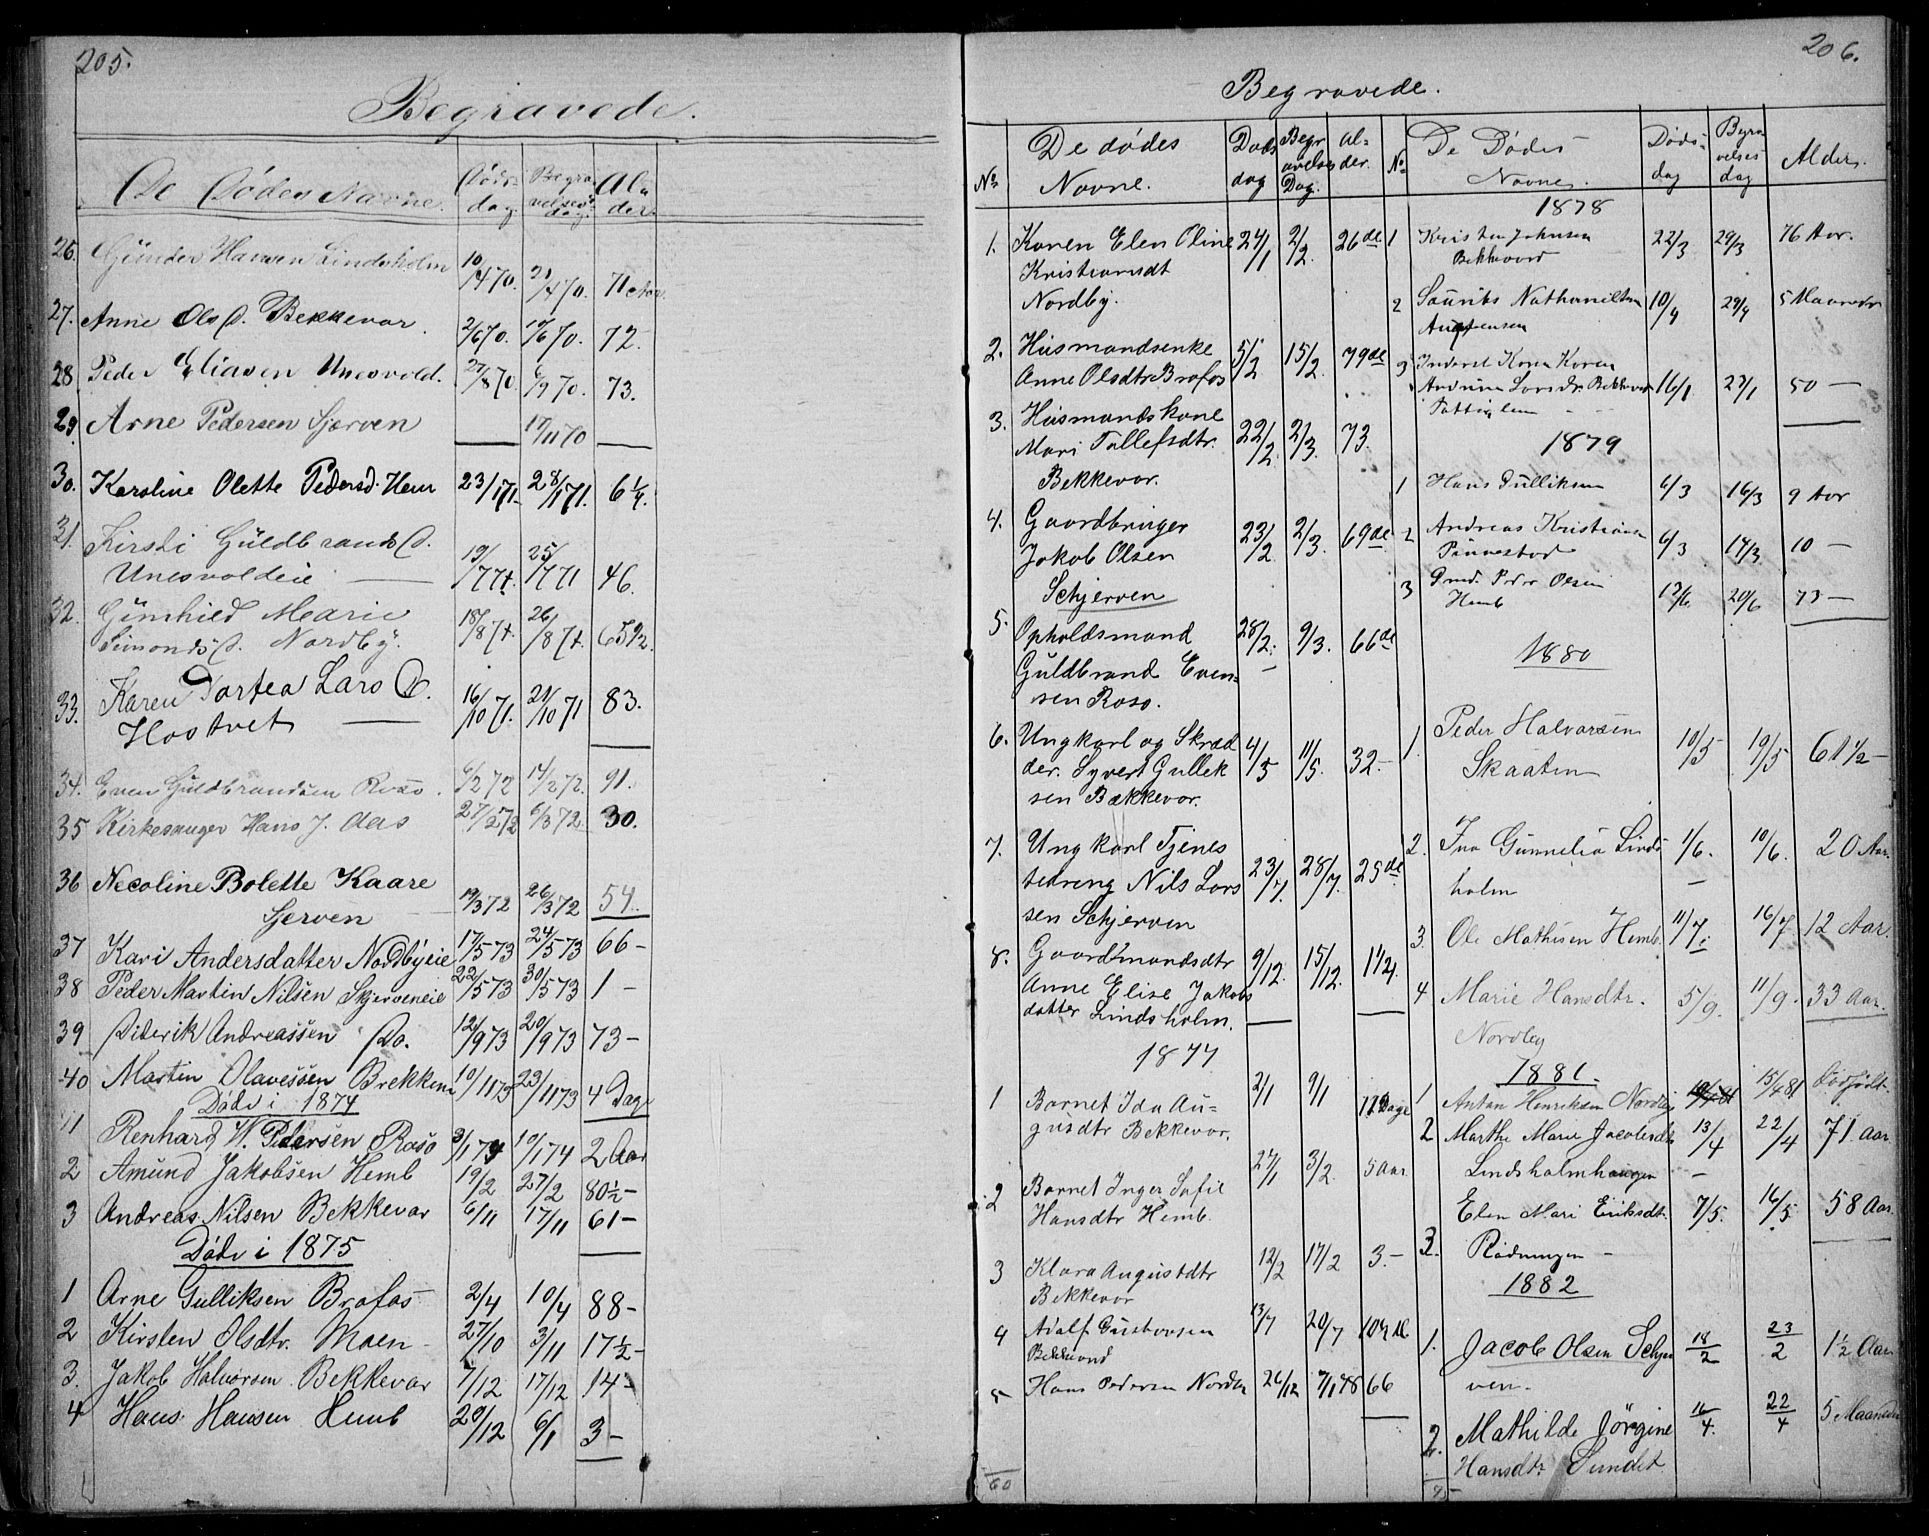 205.
Begravede.
De Dødes Navne. Døds- dag Begra- velses- dag. Al- der
26. Gunder Hansen Lindsholm 10/4 70. 21/4 70. 71 Aar
27. Anne Ols D. Bekkevar. 2/6 70. 10/6 70. 72.
28 Peder Eliasen Unesvold. 27/8 70. 6/9 70. 73.
29. Arne Pedersen Sjerven — 17/11 70 —
30. Karoline Olette Pedersd. Hem 23/1 71. 28/1 71. 6 1/4.
31. Kirsti Guldbrands D.
Unesvoldeie — 19/7 71. 25/7 71 46.
32. Gunhild Marie
Simonds D. Nordby. 18/8 71. 26/8 71. 65 1/2.
33. Karen Dortea Lars D.
Hostvet — 16/10 71. 21/10 71 83.
34. Even Guldbrandsen Roso. 6/2 72 14/2 72. 91.
35 Kirkesanger Hans J. Aas 27/2 72 6/3 72. 30.
36 Necoline Bolette Kaare
Sjerven 19/3 72 26/3 72 54.
37 Kari Andersdatter Nordbyeie 17/5 73 24/5 73 66 –
38 Peder Martin Nilsen Skjerveneie 22/5 73 30/5 73 1 –
39 Diderik Andreassen Do. 12/9 73 20/9 73 73 –
40 Martin Olavessen Brekken 10/11 73 23/11 73 4 Dage
Døde i 1874
1 Renhard W. Pedersen Roso 3/1 74 10/1 74 2 Aar
2 Amund Jakobsen Hemb 19/2 27/2 80 1/2 –
3 Andreas Nilsen Bekkevar 6/11 17/11 61 –
Døde i 1875
1 Arne Gulliksen Brofos 2/4 10/4 88 –
2 Kirsten Olsdtr. Moen 27/10 3/11 17 1/2 –
3. Jakob Halvorsen Bekkevar 7/12 17/12 14 –
4 Hans Hansen Hemb 20/12 6/1 3 –
206.
Begravede.
No De dødes Navne. Døds dag Begr avelses Dag. Al- der.
1. Karen Elen Oline 24/1 2/2. 26 de
Kristiansdt
Nordby.
2. Husmandsenke 5/2 15/2. 79 de
Anne Olsdtr Brofos
3. Husmandskone
Mari Tollefsdtr. 22/2 2/3. 73.
Bekkevar.
4. Gaardbruger
Jakob Olsen 23/2 2/3. 69 de
Schjerven
5. Opholdsmand 28/2. 9/3. 66 de
Guldbrand Even-
sen Roso.
6. Ungkarl og Skræd
der. Syvert Gullik 4/5 11/5. 32 –
sen Bækkevar.
7. Ungkarl Tjenes
tedreng Nils Lars 23/7. 28/7. 25 de
sen Schjerven
8. Gaardmandsdtr 9/12. 15/12. 1 1/2
Anne Elise Jakobs
datter Lindsholm.
1877
1 Barnet Ida Au- 2/1 9/1
gusdtr Bekkevar.
2 Barnet Inger Sofie 27/1 3/2. 5 Aar
Hansdtr Hemb.
3 Klara Augustdtr 12/2 17/2 3 –
Bekkevar
4 Adolf Gustavsen 13/7 20/7
5 Hans Pedersen Nordby 26/12 7/1 78 66
60
No De Dødes Navne. Døds- dag Begra velses dag Alder.
1878
1 Kristen Johnsen 22/3 29/3 76 Aar.
2 10/4 29/4 5 Maaneder
3 Inderst Karen Karen 16/1 27/1 50 —
1879
1 Hans Gulliksen 6/3 16/3 9 Aar
2 Andreas Kristians 6/3 14/3 10 —
3 Gmd. Peder Olsen 12/6. 20/6 73 —
Hemb
1880
1. Peder Halvorsen 10/5 19/5 61 1/2 –
Skaaten
2. Ina Gunnelia Linds 1/6. 10/6. 20 Aar.
holm
3. Ole Mathisen Hemb. 11/7. 16/7 12 Aar.
4 Marie Hansdtr. 5/9. 11/9. 33 Aar.
Nordby
1881.
1 Anton Henriksen Nordby 15/4 81 Dødfødt.
2 Marthe Marie Jacobsdtr 13/4 22/4 71 Aar
Lindsholmhaugen
3. Elen Mari Eriksdtr. 7/5. 16/5 58 Aar
Rødningen –
1882
1. Jacob Olsen Schjer 18/2 23/2 1 1/2 Aar
ven.
2. Mathilde Jørgine 16/4. 22/4 5 Maaneder
Hansdtr Sundet